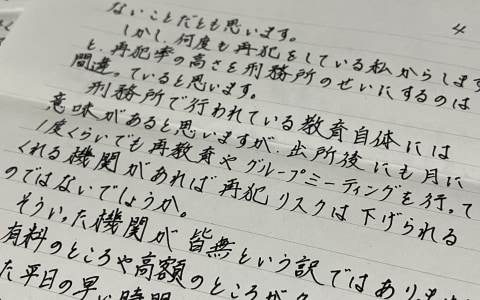 4
ないことだとも思います。
しかし、何度も再犯をしている私からします
と、再犯率の高さを刑務所のせいにするのは
間違っていると思います。
刑務所で行われている教育自体には
意味があると思いますが、出所後にも月に
1度くらいでも再教育やグループミーティングを行って
くれる機関があれば再犯リスクは下げられる
のではないでしょうか。
そういった機関が皆無という訳ではありませ
有料のところや高額のところが
た平日の早い時間